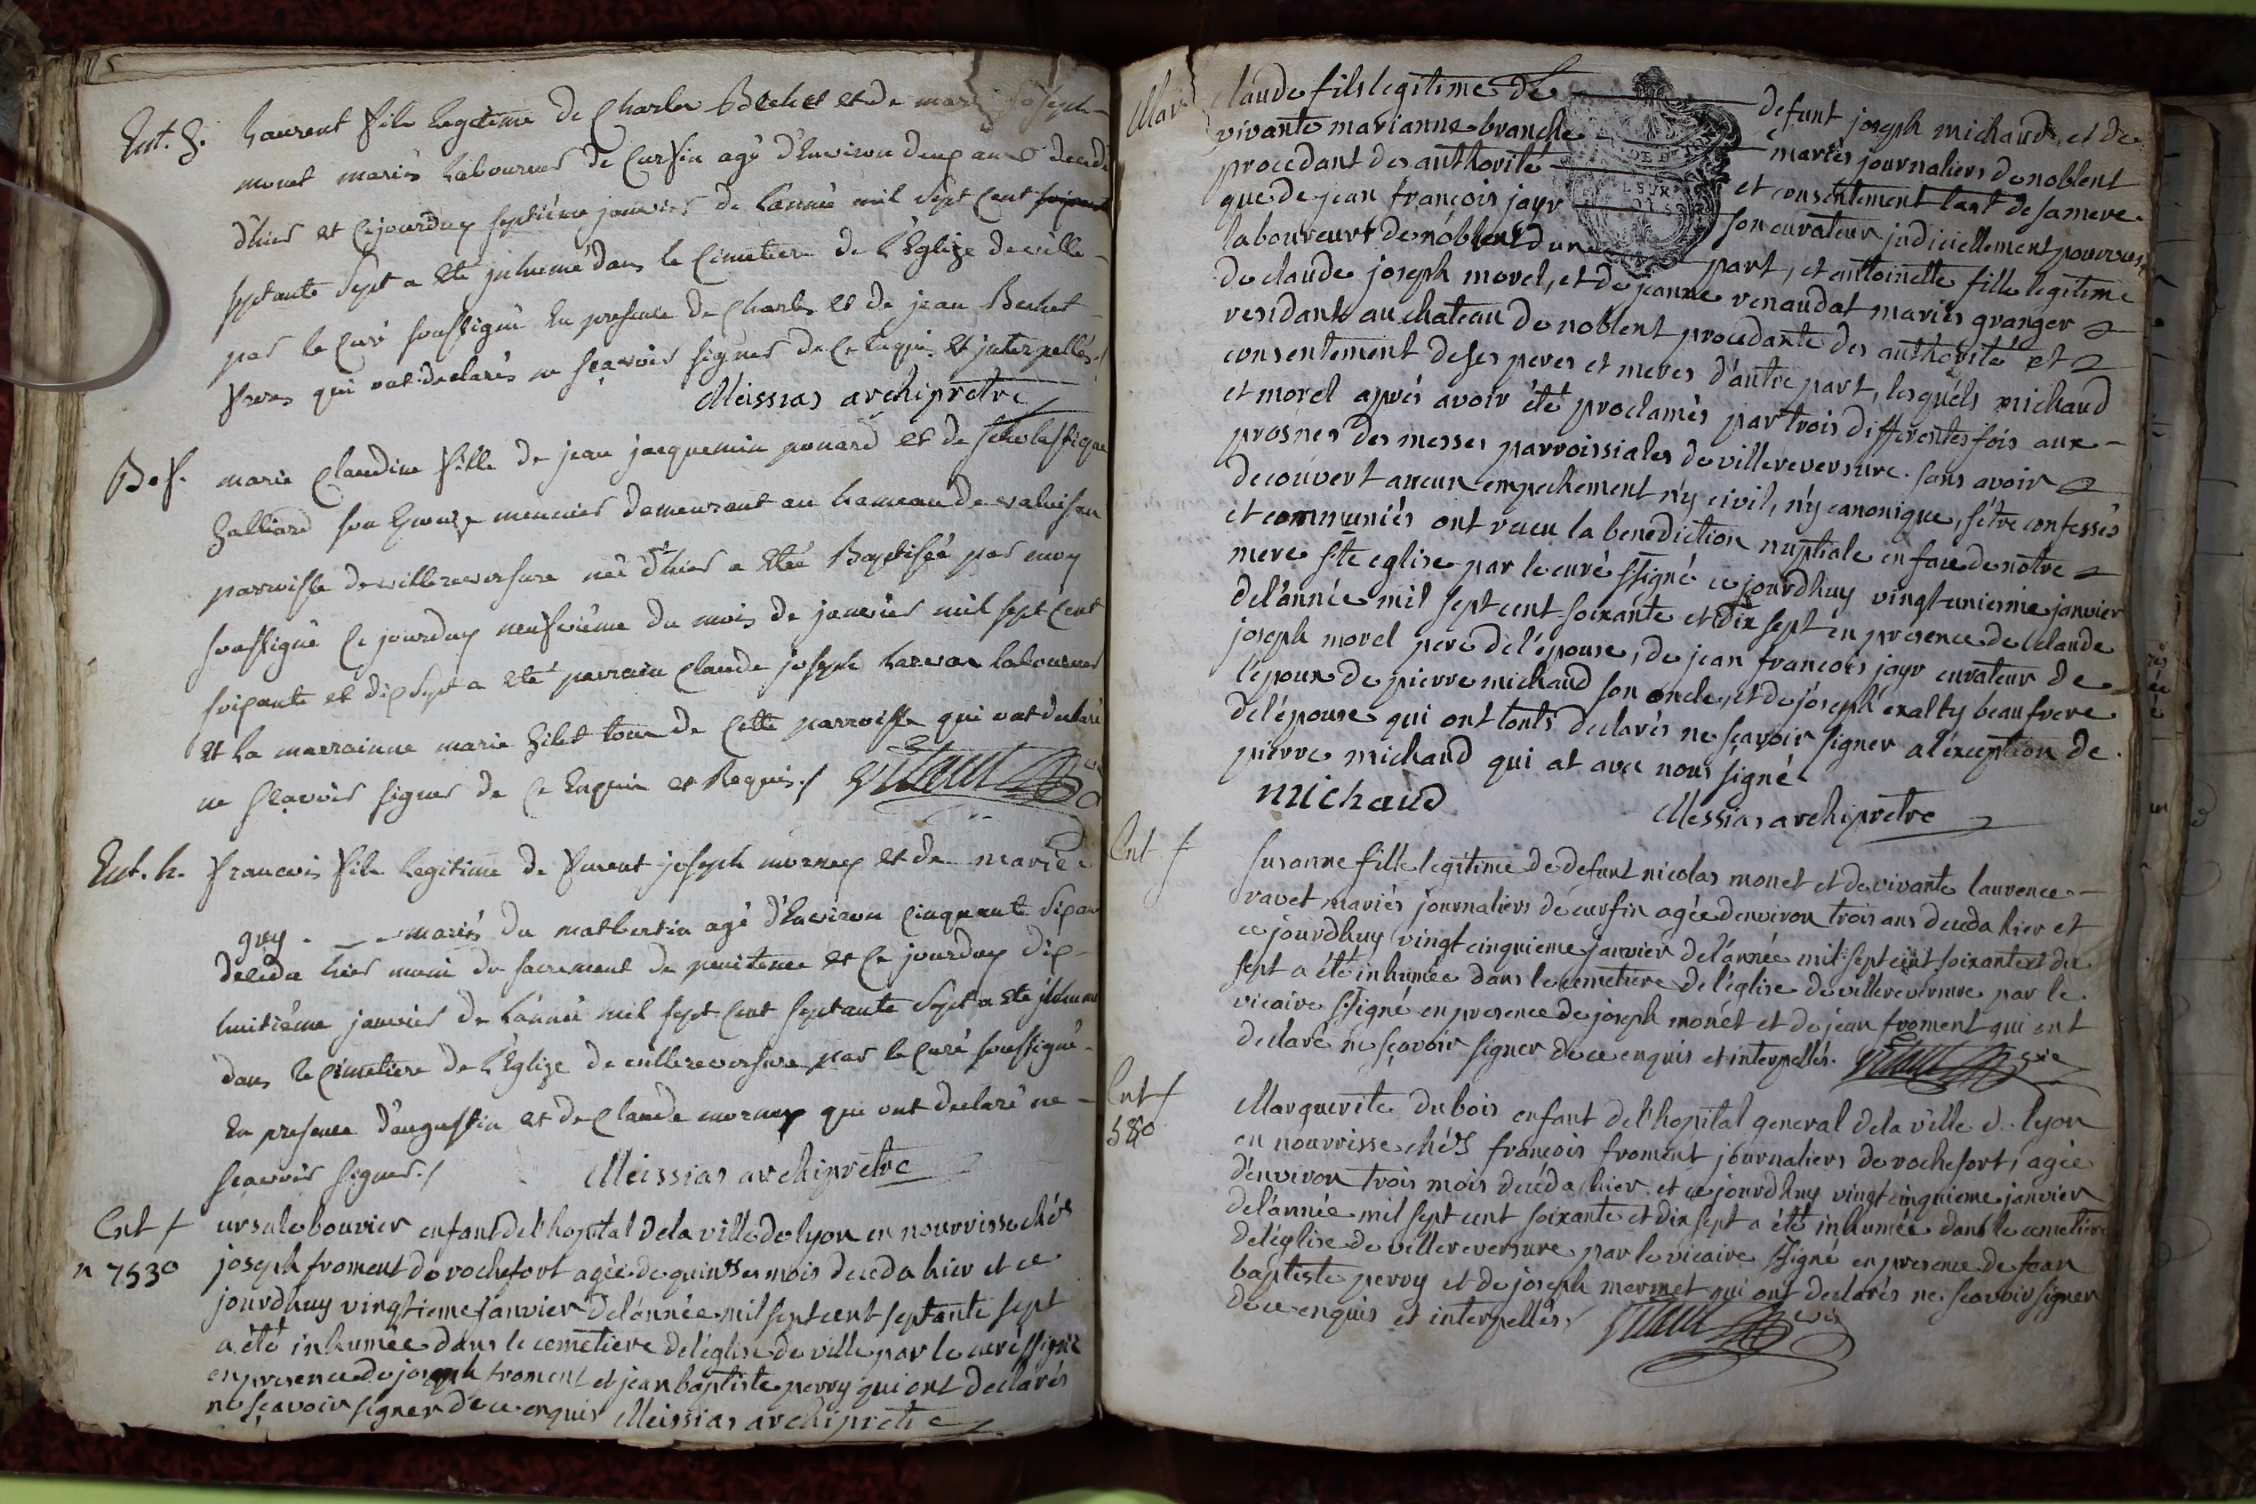 Ent. h. Laurent fils legitime de Charles Bechet et de marie joseph
monet mariés laboureurs de Curfin agé d'Environ deux ans decedé
d'hier et cejourduy septiéme janvier de l'année mil sept Cent
septante sept a Eté jnhumé dans le Cimetiere de l'Eglize de ville
par le Curé soussigné En presence de Charles et de jean Bechet
freres qui ont declarés ne sçavoir signer de Ce Enquis et jnterpellés
Meissias archiprêtre
B. f. marie Claudine fille de jean jacquemin ponard et de scholastique
son Epouze meunier demeurant au hameau de
parroisse de villereversure née d'hier a Eté Baptisée par moy
soussigné Ce jourduy neufviéme du mois de janvier mil sept Cent
soixante et dix sept a eté parrain Claude joseph laboureur
et la marrainne marie tous de Cette parroisse qui ont declaré
ne sçavoir signer de Ce Enquis et Requis
Ent. h. francois fils legitime de furent joseph mornay et de marie
guy mariés du matbertin agé d'Environ Cinquante six ans
decédé hier muni du sacrement de penitence et Ce jourduy dix
huitiéme janvier de l'année mil sept Cent septante sept a Eté jnhumé
dans le Cimetiere de l'Eglize de villereversure par le Curé soussigné
En presence d'augustin et de Claude mornay qui ont declaré ne
sçavoir signer
Meissias archiprêtre
Ent f ursule bouvier enfant de l'hopital de la ville de lyon en nourrisse chés
n 7530 joseph froment de rochefort agée de quinse mois deceda hier et ce
jourdhuy vingtieme janvier de l'année mil sept cent septante sept
a été inhumée dans le cemetiere de l'église de ville par le curé ssigné
en presence de joseph froment et jean baptiste perroy qui ont declarés
ne sçavoir signer de ce enquis Meissias archiprêtre
Mar claude fils legitime de defunt joseph michaud et de
vivante marianne branche mariés journaliers de noblent
procedant des authorité et consentement tant de sa mere
que de jean françois jayr son curateur judiciellement pourvus
laboureurs de noblent d'une part, et antoinette fille legitime
de claude joseph morel, et de jeanne renaudat mariés granger
residants au chateau de noblent procedante des authorité et
consentement de ses peres et meres d'autre part, lesquels michaud
et morel aprés avoir été proclamés par trois differentes fois aux
prosnes des messes parroissiales de villereversure sans avoir
decouvert aucun empechement n'y civil, n'y canonique, s'étre confessés
et communiés ont recu la benediction nuptiale en face de notre
mere ste eglise par le curé ssigné ce jourdhuy vingt unieme janvier
de l'année mil sept cent soixante et dix sept en presence de claude
joseph morel pere de l'épouse, de jean francois jayr curateur de
l'époux de pierre michaud son oncle, et de joseph exalty beaufrere
de l'épouse qui ont touts declarés ne sçavoir signer a l'exception de
pierre michaud qui at avec nous signé
michaud
Messias archiprêtre
Ent f susanne fille legitime de defunt nicolas monet et de vivante laurence
ravet mariés journaliers de curfin agée denviron trois ans deceda hier et
ce jourdhuy vingt cinquieme janvier de l'année mil sept cent soixante et dix
sept a été inhumée dans le cemetiere de l'église de villereversure par le
vicaire ssigné en presence de joseph monet et de jean froment qui ont
declaré ne sçavoir signer de ce enquis et interpellés.
Ent f Marguerite dubois enfant de l'hopital general de la ville de lyon
en nourrisse chés francois froment journaliers de rochefort, agée
d'environ trois mois deceda hier et ce jourdhuy vingt cinquieme janvier
de l'année mil sept cent soixante et dix sept a été inhumée dans le cemetiere
de l'église de villereversure par le vicaire ssigné en presence de jean
baptiste perroy et de joseph mermet qui ont declarés ne sçavoir signer
de ce enquis et interpellés